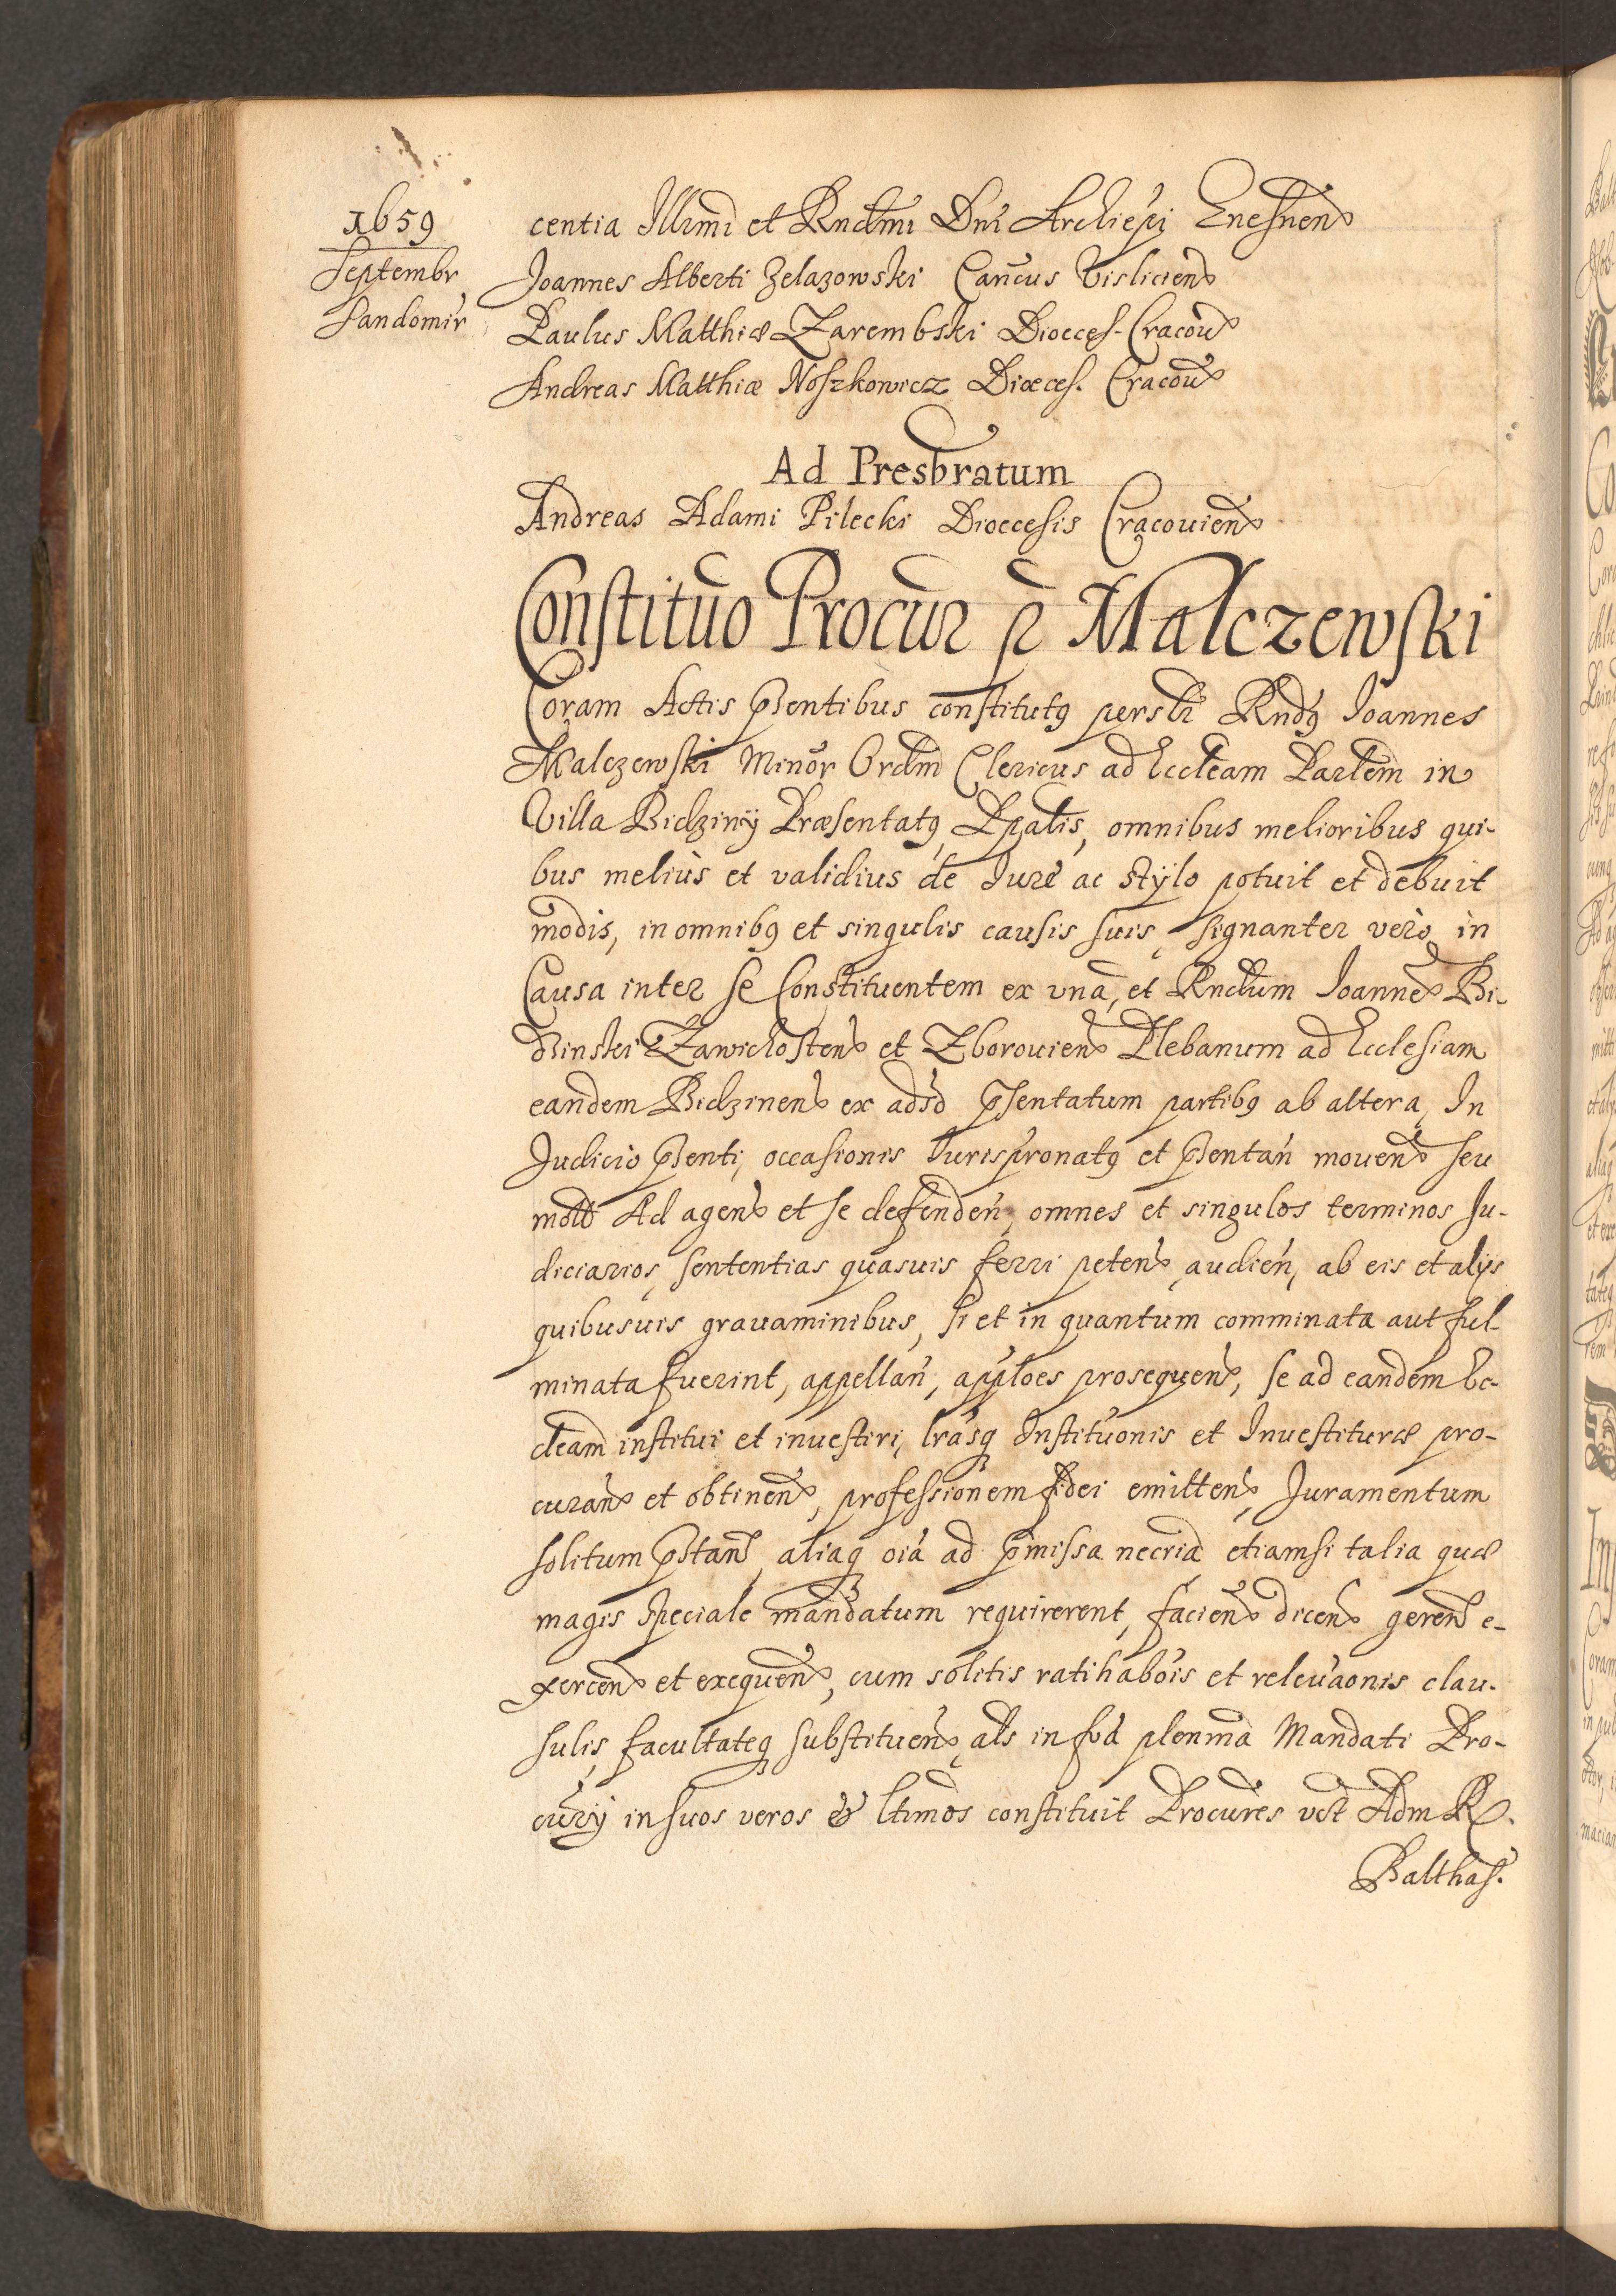 1659
Septembr
Sandomir
centia Illrmi et Rndmi Dni Archiepi Gnesnen
Joannes Alberti Zelazowski Cancus Visliciens
Paulus Matthiæ Zarembski Dioeces. Cracov
Andreas Matthiæ Noszkowicz Dioeces. Cracov
Ad Presbratum
Andreas Adami Pilecki Dioecesis Cracovien
Constituo Procur p Malczewski
Coram Actis psentibus constitutq persli Rndq Joannes
Malczewski Minor Ordm Clericus ad Eccleam Parlem in
Villa Bidziny Præsentatq Ppalis, omnibus melioribus qui-
bus melius et validius de Jure ac stylo potuit et debuit
modis, in omnibq et singulis causis suis, signanter vero in
Causa inter se Constituentem ex una, et Rndum Joannem Bi-
dzinski Zawichosten et Zborovien Plebanum ad Ecclesiam
eandem Bidzinen ex adso psentatum partibq ab altera, In
Judicio psenti, occasionis Jurispronatq et psentan moven seu
mota Ad agen et se defenden, omnes et singulos terminos Ju-
diciarios, sententias quasuis ferri peten, audien, ab eis et alijs
quibusuis grauaminibus, si et in quantum comminata aut ful-
minata fuerint, appellan, apploes prosequen, se ad eandem Ec-
cleam institui et inuestiri, lrasq Instituonis et Inuestituræ pro-
curan et obtinen, professionem fidei emitten, Juramentum
solitum pstan, aliaq oia ad pmissa necria etiamsi talia quæ
magis speciale mandatum requirerent, facien dicen geren e-
xercen et exequen, cum solitis ratihabois et releuaonis clau-
sulis, facultateq substituen, als in foa plenma Mandati Pro-
curij in suos veros & ltimos constituit Procures vdt Adm R.
Balthas.